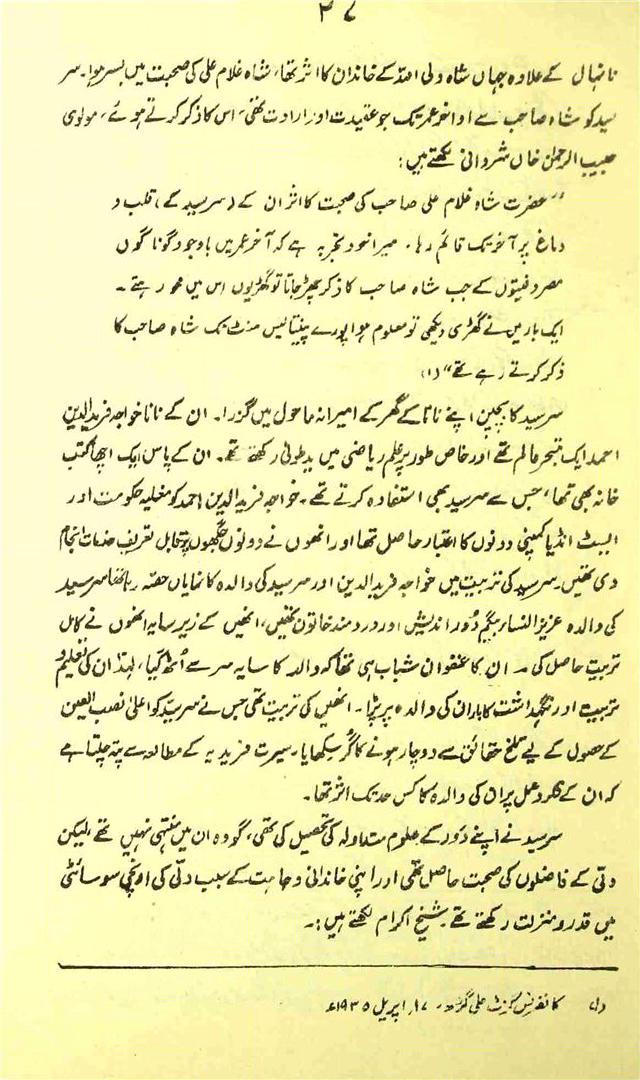 ۲۷
نانہال کے علاوہ جہاں شاہ ولی اللہ کے خاندان کا اثر تھا، شاہ غلام علی کی صحبت میں بسر ہوا۔ سر
سید کو شاہ صاحب سے اواخر عمر تک جو عقیدت اور ارادت تھی، اس کا ذکر کرتے ہوئے، مولوی
حبیب الرحمٰن خاں شروانی لکھتے ہیں:
”حضرت شاہ غلام علی صاحب کی صحبت کا اثر ان کے (سرسید کے) قلب و
دماغ پر آخر تک قائم رہا۔ میرا خود تجربہ ہے کہ آخر عمر میں باوجود گونا گوں
مصروفیتوں کے جب شاہ صاحب کا ذکر چھڑ جاتا تو گھڑیوں اس میں محو رہتے۔
ایک بار میں نے گھڑی دیکھی تو معلوم ہوا پورے پینتالیس منٹ تک شاہ صاحب کا
ذکر کرتے رہے تھے“ (۱)
سرسید کا بچپن اپنے نانا کے گھر کے امیرانہ ماحول میں گزرا۔ ان کے نانا خواجہ فریدالدین
احمد ایک متبحر عالم تھے اور خاص طور پر علم ریاضی میں یدطولیٰ رکھتے تھے۔ ان کے پاس ایک اچھا کتب
خانہ بھی تھا، جس سے سرسید بھی استفادہ کرتے تھے۔ خواجہ فریدالدین احمد کو مغلیہ حکومت اور
ایسٹ انڈیا کمپنی دونوں کا اعتبار حاصل تھا اور انھوں نے دونوں جگہوں پر قابل تعریف خدمات انجام
دی تھیں۔ سرسید کی تربیت میں خواجہ فریدالدین اور سرسید کی والدہ کا نمایاں حصہ رہا تھا۔ سرسید
کی والدہ عزیزالنساء بیگم دور اندیش اور دردمند خاتون تھیں، انھیں کے زیر سایہ انھوں نے کامل
تربیت حاصل کی۔ ان کا عنفوان شباب ہی تھا کہ والد کا سایہ سر سے اُٹھ گیا، لہٰذا ان کی تعلیم و
تربیت اور نگہداشت کا باران کی والدہ پر پڑا۔ انھیں کی تربیت تھی جس نے سرسید کو اعلیٰ نصب العین
کے حصول کے لیے تلخ حقائق سے دوچار ہونے کا گُر سکھایا۔ سیرت فریدیہ کے مطالعہ سے پتہ چلتا ہے
کہ ان کے فکر و عمل پر ان کی والدہ کا کس حد تک اثر تھا۔
سرسید نے اپنے دَور کے علوم متداولہ کی تحصیل کی تھی، گو وہ ان میں منتہی نہیں تھے، لیکن
دلّی کے فاضلوں کی صحبت حاصل تھی اور اپنی خاندانی وجاہت کے سبب دلّی کی اونچی سوسائٹی
میں قدر و منزلت رکھتے تھے۔ شیخ اکرام لکھتے ہیں:۔
(۱) کانفرنس گزٹ علی گڑھ، ۱۷؍ اپریل ۱۹۳۵ء